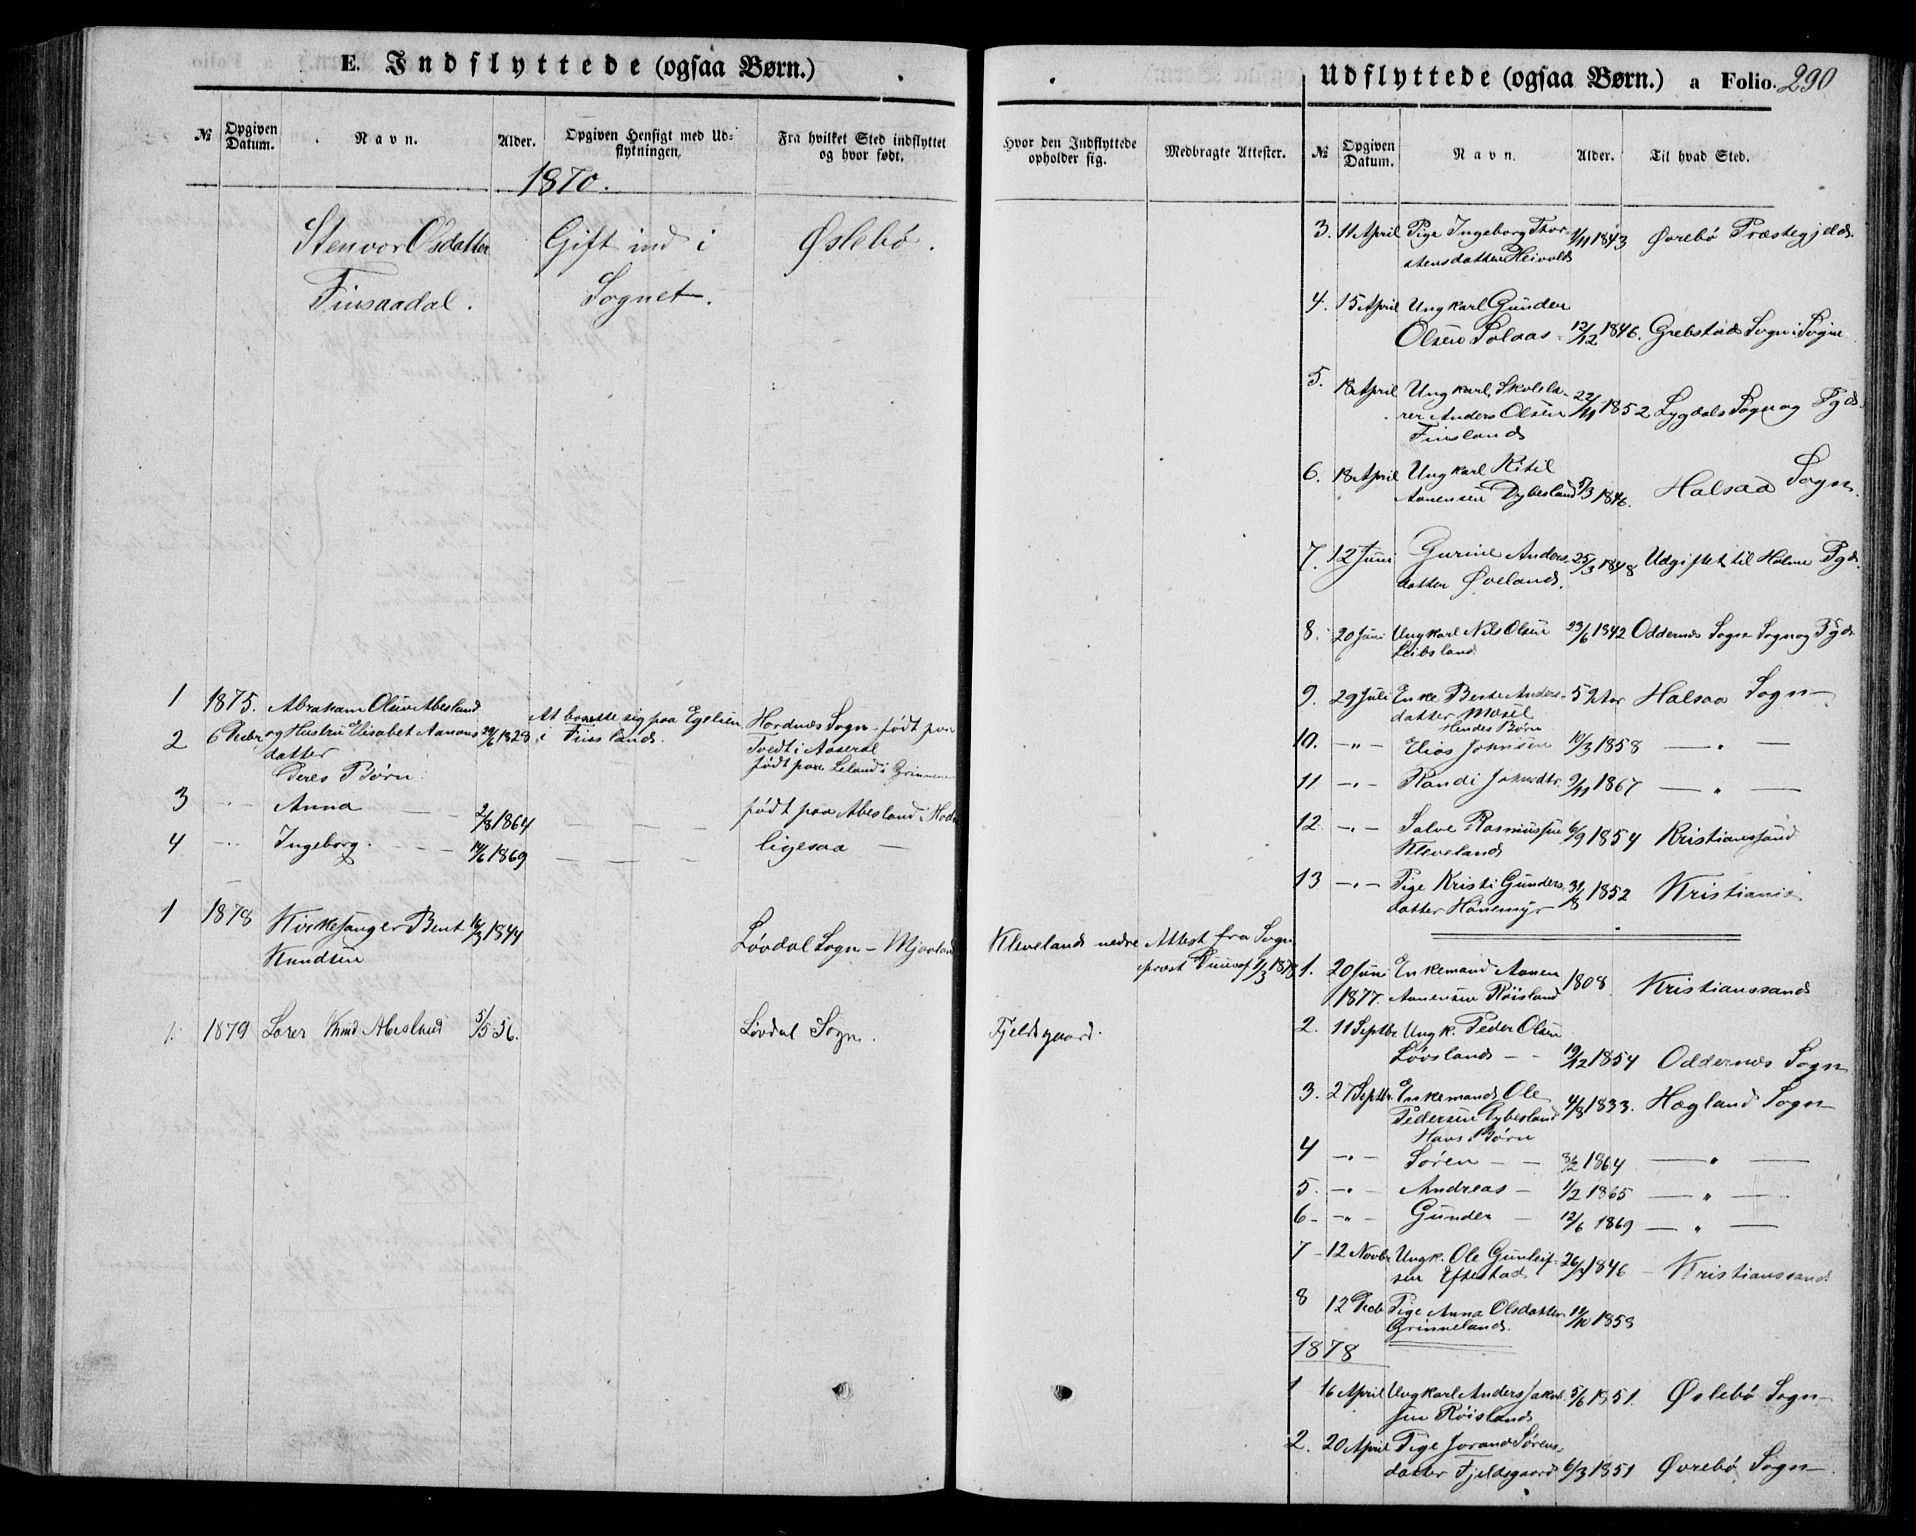 E. Indflyttede (ogsaa Børn.)
№ Opgiven Datum. Navn. Alder. Opgiven Hensigt med Udflytningen. Fra hvilket Sted indflyttet og hvor født.
1870.
Stenvor Olsdatter Gift ind i Øslebø.
Finsaadal. Sognet.
1 1875. Abraham Olsen Abesland
2 6 Febr og Hustru Elisabet Aanons 1828 At bosætte sig paa i Finsland. Sogn født paa
datter Tvedt i Aaseral
Deres Børn: født paa Leland i
3 Anna 2/8 1864 født paa Abesland i
4 Ingeborg. 1869 ligesaa
1 1878 Kirkesanger Bent 1844
Knudsen Løvdal Sogn - Mjaaland
1. 1879 Lærer Knud Abesland 5/5 56. Løvdal Sogn
Udflyttede (ogsaa Børn.) a Folio. 290
Hvor den Indflyttede opholder sig. Medbragte Attester. № Opgiven Datum. Navn. Alder. Til hvad Sted.
Kleveland nedre Attest fra Sogne
præst 1/3 1878
Fjeldsgaard.
3. 11 April Pige Ingeborg Thor 1/11 1843 Øvrebø Præstegjeld.
stensdatter Heivold
4. 15 April Ungkarl Gunder
Olsen Solaas 12/12 1846. Grebstad Sogn i Søgne
5. 18 April Ungkarl, Skolelæ-
rer Anders Olsen 22/11 1852 Lygdals Sogn og Pgd.
Finsland
6. 18 April Ungkarl Kitil
Aanensen Dybesland 5/3 1846. Halsaa Sogn.
7. 12 Juni Gurine Anders 25/3 1848 Udgiftet til Holme Pgd.
datter Øveland.
8. 20 Juni Ungkarl Nils Olsen 23/6 1842 Oddernes Sogn Sogn og Pgd.
Leibsland
9. 29 Juli Enke Berte Anders- 52 Aar Halsaa Sogn
datter Mosel
Hendes Børn
10. -"- Elias Johnsen 10/3 1858 — " —
11 -"- Randi Johnsdtr. 9/11 1867 — " —
12. -"- Salve Rasmussen 6/9 1854 Kristianssand
Kleveland
13 -"- Pige Kristi Gunders 31/8 1852 Kristiania
datter Hønemyr
1. 20 Juni Enkemand Aanen 1808 Kristianssand
1877. Aanensen Røisland
2. 11 Septbr Ungk. Peder Olsen
Løvsland - - 19/12 1854 Oddernes Sogn
3. 27 Septbr. Enkemand Ole 4/8 1833. Hægland Sogn
Pedersen Dybesland
Hans Børn
4 -"- Søren - - 1864 — " —
5. -"- Andreas - 1/2 1865 — " —
6- -"- Gunder - 12/6 1869 — " —
7 - 12 Novbr Ungk. Ole Gunleif- 26/7 1846 - Kristianssand
sen Eftestad
8 12 Pige Anna Olsdatter 11/10 1858
Grinneland.
1878
1 16 April Ungkarl Anders Jakob 5/6 1851. Øslebø Sogn
sen Røisland
2. 20 April Pige Jorand Sørens-
datter Fjeldsgaard 6/3 1851 Øvrebø Sogn